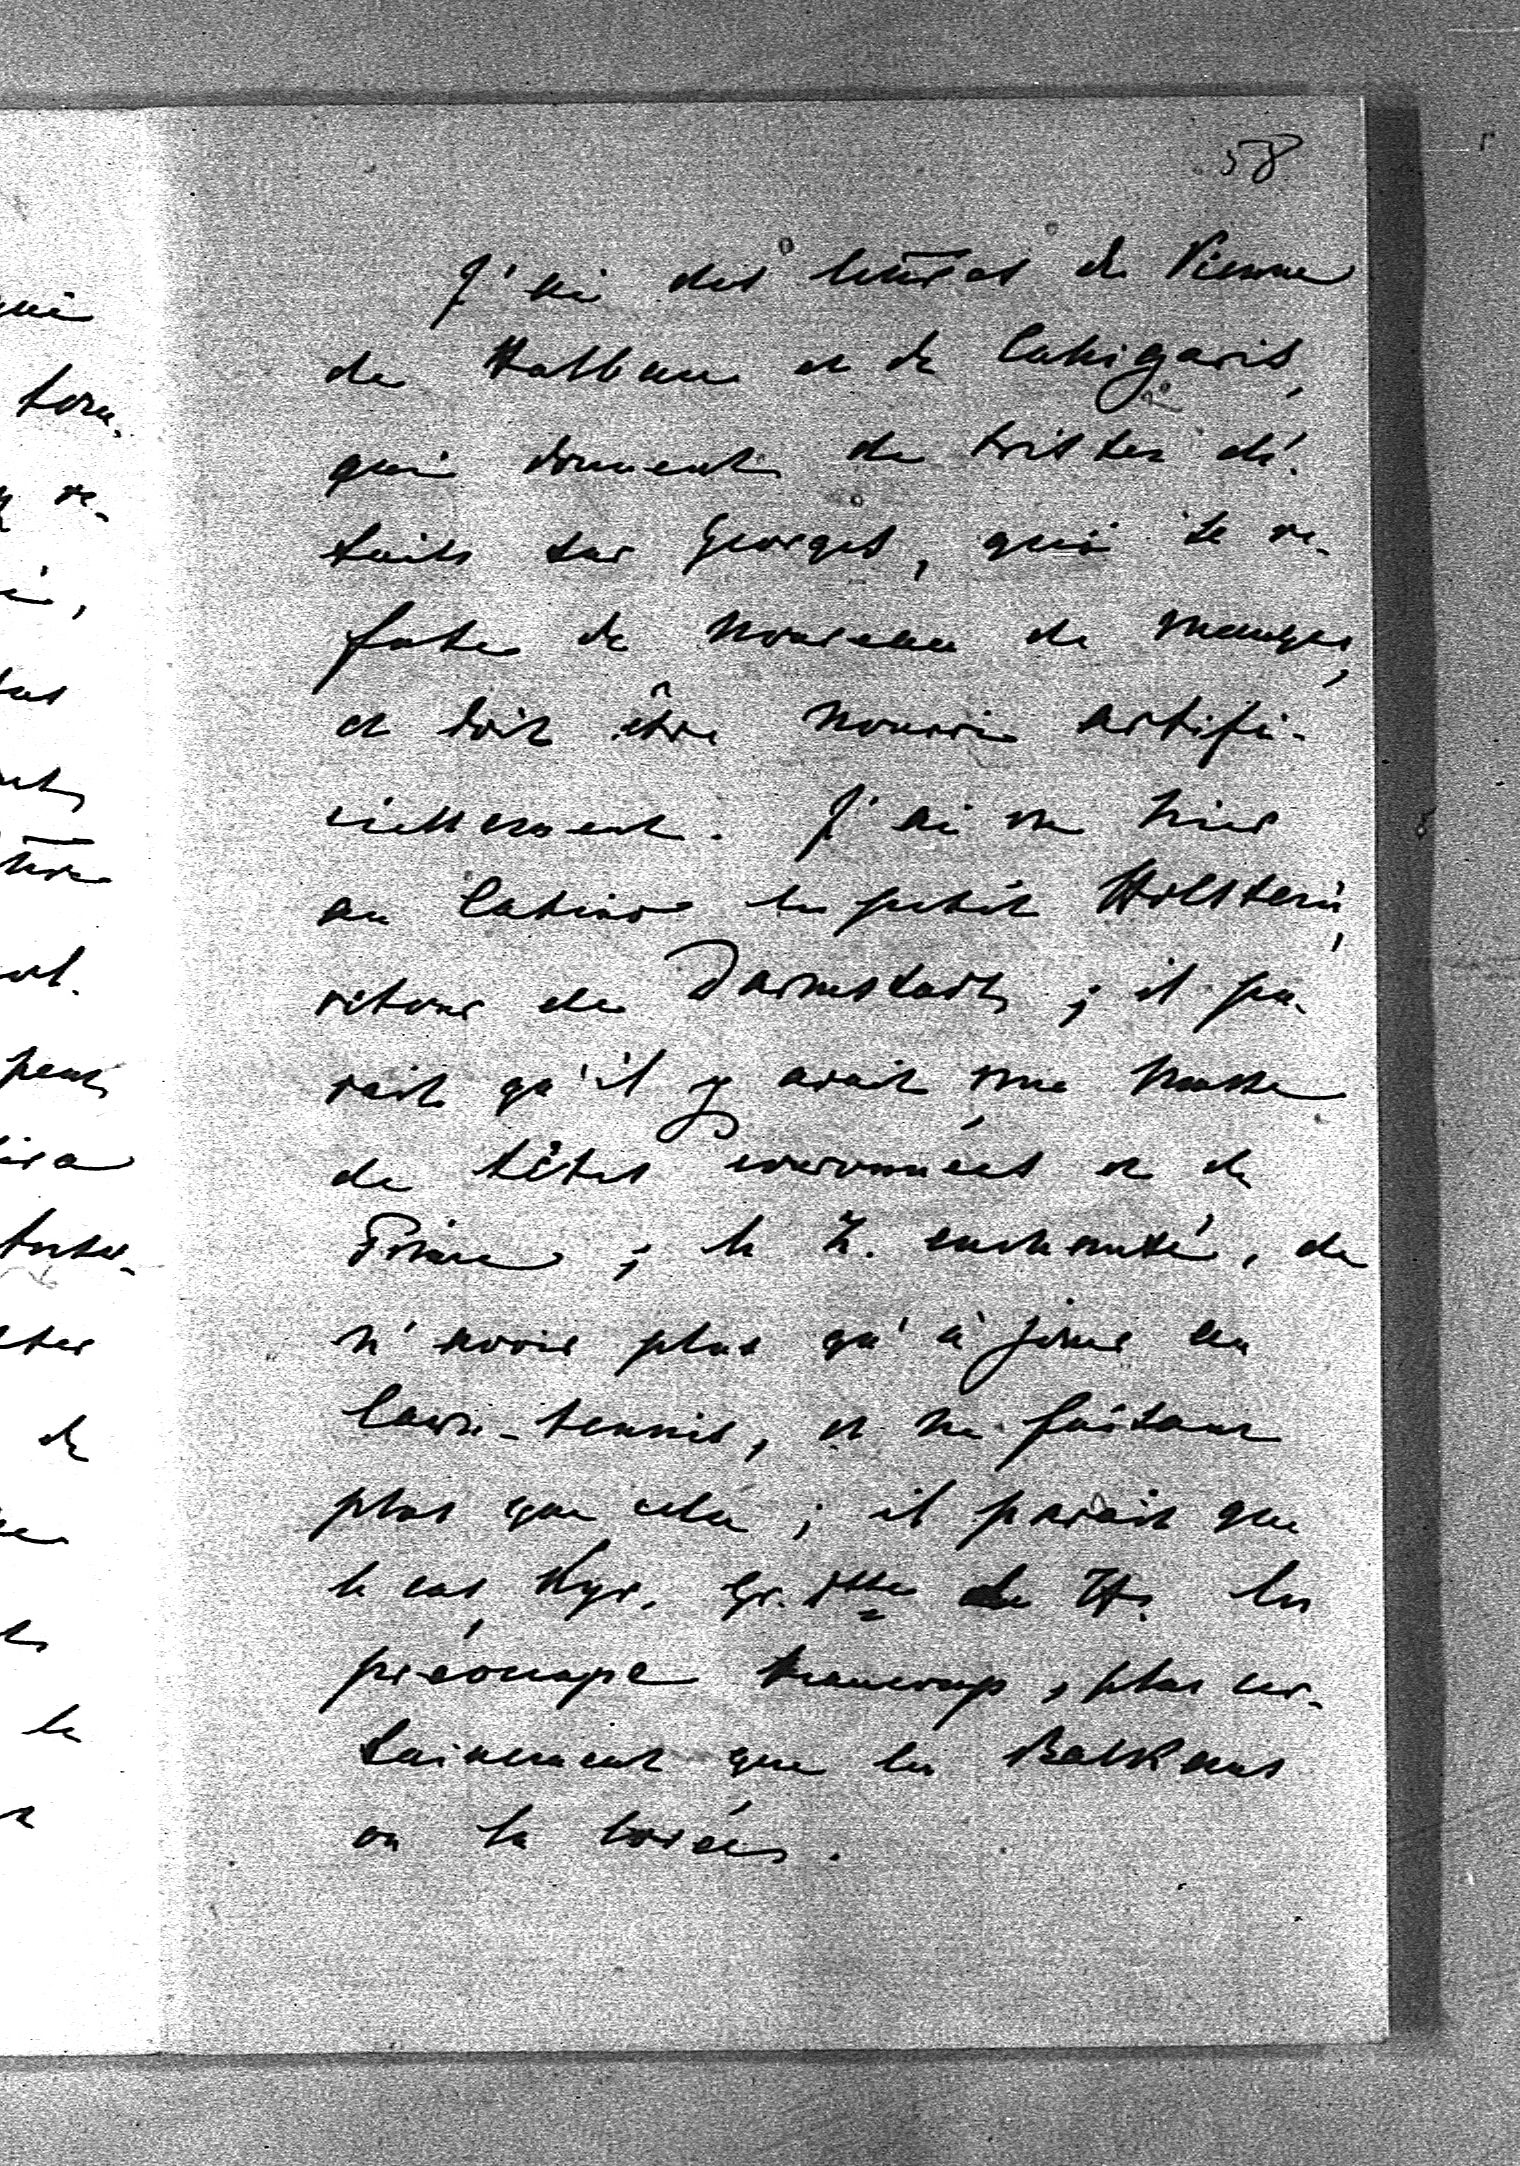 58
J'ai des lettres de Vienne
de Halbau et de Cahigaris,
qui donnent de tristes dé-
tails sur Georges, qui se re-
fute de nouveau de manger,
et doit être nourri artifi-
ciellement. J'ai vu hier
au Casino le petit Holstein,
retour de Darmstadt ; il pa-
rait qu'il y avait une masse
de têtes couronnées et de
Prince ; le Z. enchanté, de
n'avoir plus qu'à jouer au
lawn-tennis, et ne faisant
plus que cela ; il parait que
le cas Gr. de H. les
préoccupe beaucoup, plus cer-
tainement que les Balkans
ou la Corée.